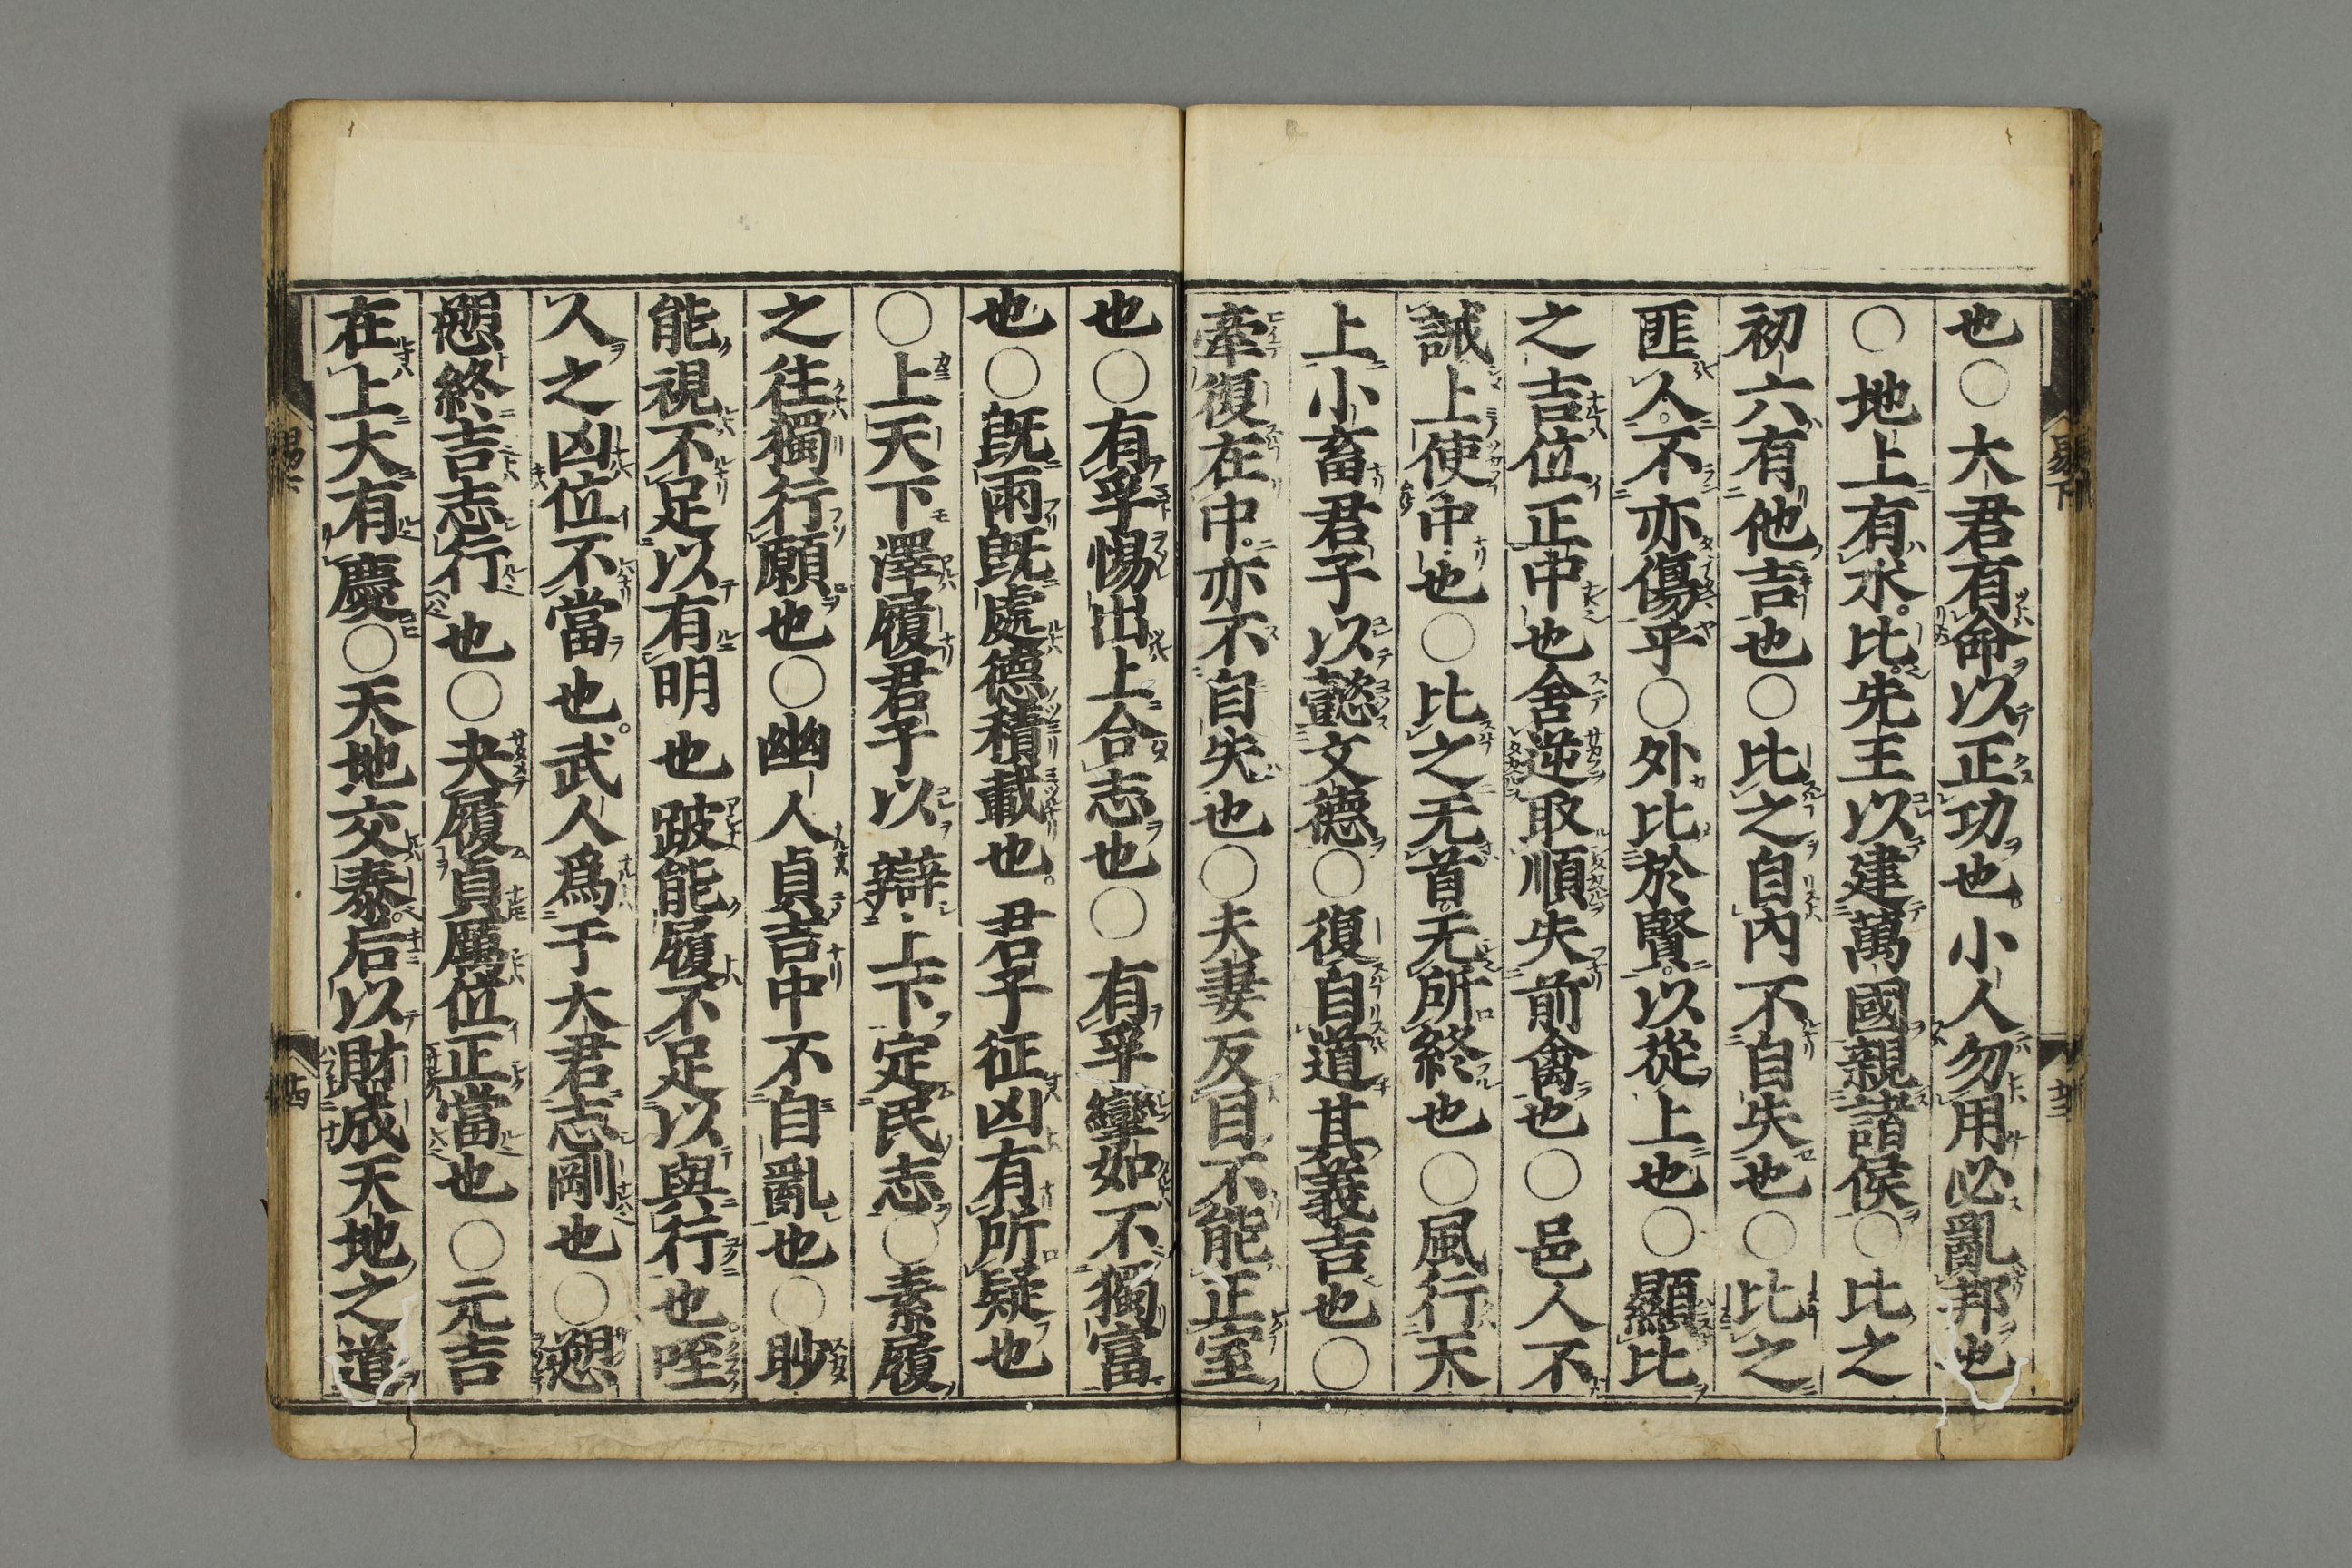 也○大君有命以正功也小人勿用必亂邦也
○地上有水比先王以建萬國親諸侯○比之
初六有他吉也○比之自內不自失也○比之
匪人不亦傷乎○外比於賢以從上也○顯比
之吉位正中也舍逆取順失前禽也○邑人不
誡上使中也○比之无首无所終也○風行天
上小畜君子以懿文德○復自道其義吉也○
牽復在中亦不自失也○夫妻反目不能正室
也○有孚惕出上合志也○有孚攣如不獨富
也○旣雨旣處德積載也君子征凶有所疑也
○上天下澤履君子以辯上下定民志○素履
之往獨行願也○幽人貞吉中不自亂也○眇
能視不足以有明也跛能履不足以與行也咥
人之凶位不當也武人爲于大君志剛也○愬
愬終吉志行也○夬履貞厲位正當也○元吉
在上大有慶○天地交泰后以財成天地之道